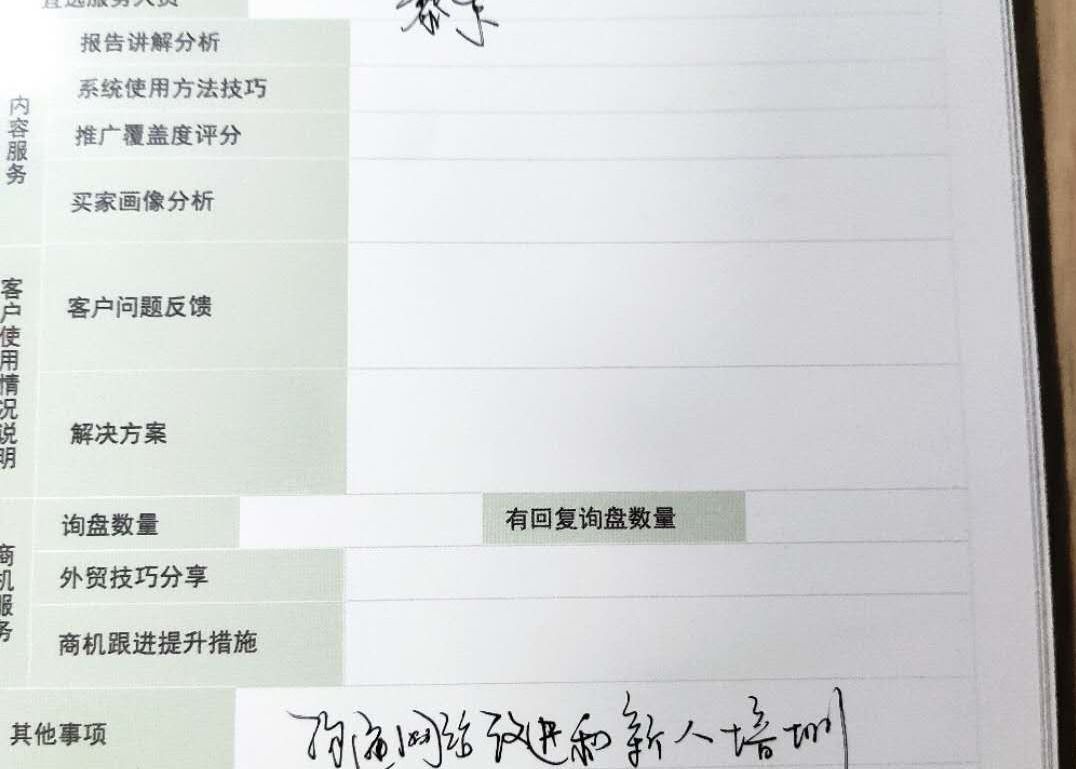 报告讲解分析
系统使用方法技巧
推广覆盖度评分
买家画像分析
内容服务
客户问题反馈
解决方案
客户使用情况说明
询盘数量 有回复询盘数量
外贸技巧分享
商机跟进提升措施
商机服务
其他事项 沟通网站改进和新人培训